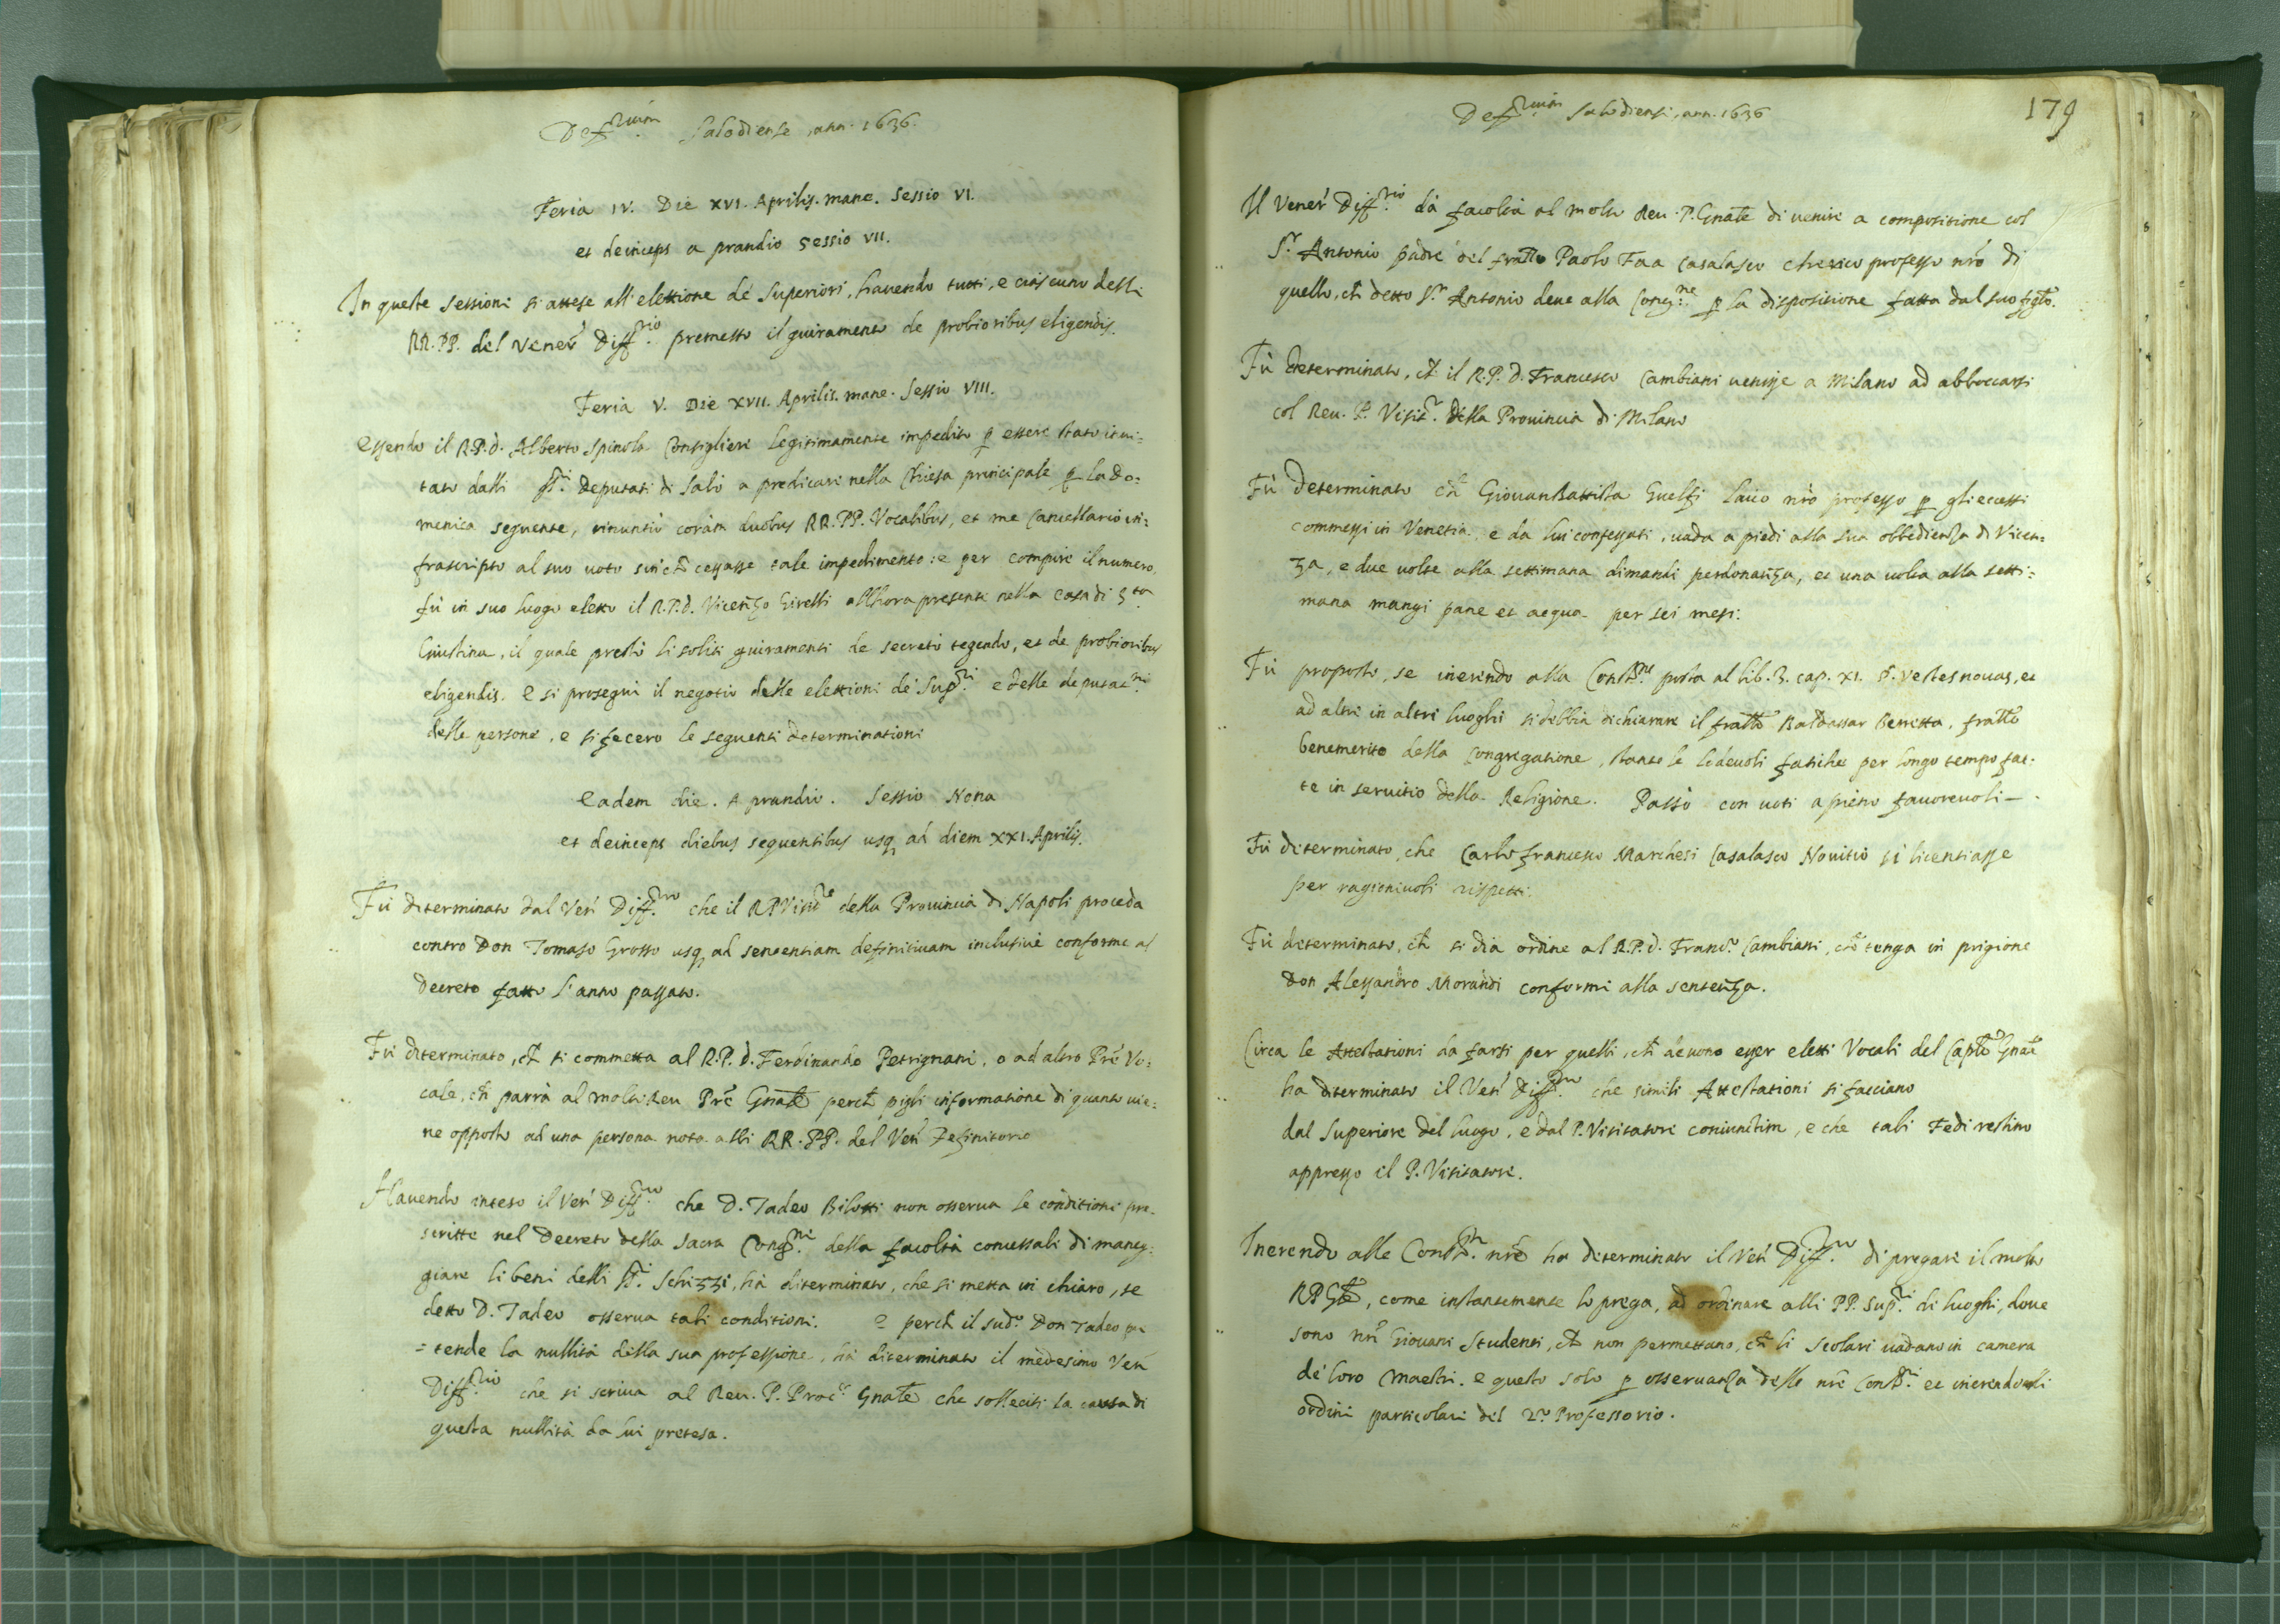 Def.rium Salodiense, ann. 1636.
Feria IV. Die XVI. Aprilis. mane. Sessio VI.
et deinceps a prandio Sessio VII.
In queste sessioni si attese all'elettione de' Superiori, havendo tutti, e ciascuno delli
RR. PP. del Vener. Diff.rio premesso il giuramento de probioribus eligendis.
Feria V. Die XVII. Aprilis. mane. Sessio VIII.
Essendo il R.P.D. Alberto Spinola Consigliere legitimamente impedito p essere stato invi=
tato dalli SS.ri Deputati di Salò a predicare nella Chiesa principale p la Do=
menica seguente, rinuntiò coràm duobus RR. PP. Vocalibus, et me Cancellario in=
frascripto al suo voto sin ch cessasse tale impedimento: e per compire il numero,
fù in suo luogo eletto il R.P.D. Vicenzo Girelli allhora presente nella casa di S.ta
Giustina, il quale prestò li soliti giuramenti de secreto tegendo, et de probioribus
eligendis. e si proseguì il negotio delle elettioni de' Sup.ri e delle deputat.ni
delle persone, e si fecero le seguenti determinationi
Eadem die. A prandio. Sessio Nona
et deinceps diebus sequentibus usq ad diem XXI. Aprilis.
Fù determinato dal Ven. Diff.rio che il RP Visit.re della Provincia di Napoli proceda
contro Don Tomaso Grosso usq ad sententiam definitivam inclusive conforme al
Decreto fatto l'anno passato.
Fù determinato, ch si commetta al R.P.D. Ferdinando Petrignani, o ad altro Pre Vo=
cale, ch parrà al molto Rev. Pre Gnale perch pigli informatione di quanto vie=
ne opposto ad una persona nota alli RR. PP. del Ven. Definitorio
Havendo inteso il Ven. Diff.rio che D. Tadeo Bilotti non osserva le conditioni pre=
scritte nel Decreto della Sacra Cong.ne della facoltà concessali di maneg=
giare li beni delli SS.ri Schizzi, hà determinato, che si metta in chiaro, se
detto D. Tadeo osserva tali conditioni. e perch il sud.o Don Tadeo pre
=tende la nullità della sua professione, hà determinato il medesimo Ven.
Diff.rio che si scriva al Rev. P. Proc.r Gnale che solleciti la causa di
questa nullità da lui pretesa.
Def.rium Salodiense, ann. 1636
179
Il Vener. Diff.rio dà facoltà al molto Rev. P. Gnale di venire a compositione col
S.r Antonio padre del fratello Paolo Faa Casalasco cherico professo nro di
quello, ch detto S.r Antonio deve alla Cong.ne p la dispositione fatta dal suo figlo.
Fù determinato, ch il R.P.D. Francesco Cambiani venisse a Milano ad abboccarsi
col Rev. P. Visit.r della Provincia di Milano
Fù determinato ch GiovanBattista Guelfi laico nro professo p gli eccessi
commessi in Venetia, e da lui confessati, vada a piedi alla sua obbedienza di Vicen=
za, e due volte alla settimana dimandi perdonanza, et una volta alla setti=
mana mangi pane et acqua per sei mesi.
Fù proposto, se inerendo alla Const.ne posta al lib. 3. cap. XI. §. Vestes novas, et
ad altre in altri luoghi si debbia dichiarare il fratello Baldassar Berretta, fratello
benemerito della Congregatione, stante le lodevoli fatiche per longo tempo fat=
te in servitio della Religione. Passò con voti a pieno favorevoli -
Fù determinato, che Carlo francesco Marchesi Casalasco Novitio si licentiasse
per ragionevoli rispetti.
Fù determinato, ch si dia ordine al R.P.D. Franc.o Cambiani, ch tenga in prigione
Don Alessandro Morandi conforme alla sentenza.
Circa le Attestationi da farsi per quelli, ch devono esser eletti Vocali del Caplo Gnale
ha determinato il Ven. Diff.rio che simili Attestationi si facciano
dal Superiore del luogo, e dal P. Visitatore coniunctim, e che tali Fedi restino
appresso il P. Visitatore.
Inerendo alle Const.ni nre ha determinato il Ven. Diff.rio di pregare il molto
RP Gnale, come instantemente lo prega, ad ordinare alli PP. Sup.ri di luoghi, dove
sono nri Giovani Studenti, ch non permettano, ch li Scolari vadano in camera
de' loro Maestri. e questo solo p osservanza delle nre Const.ni et inerendo alli
ordini particolari del 2.o Professorio.